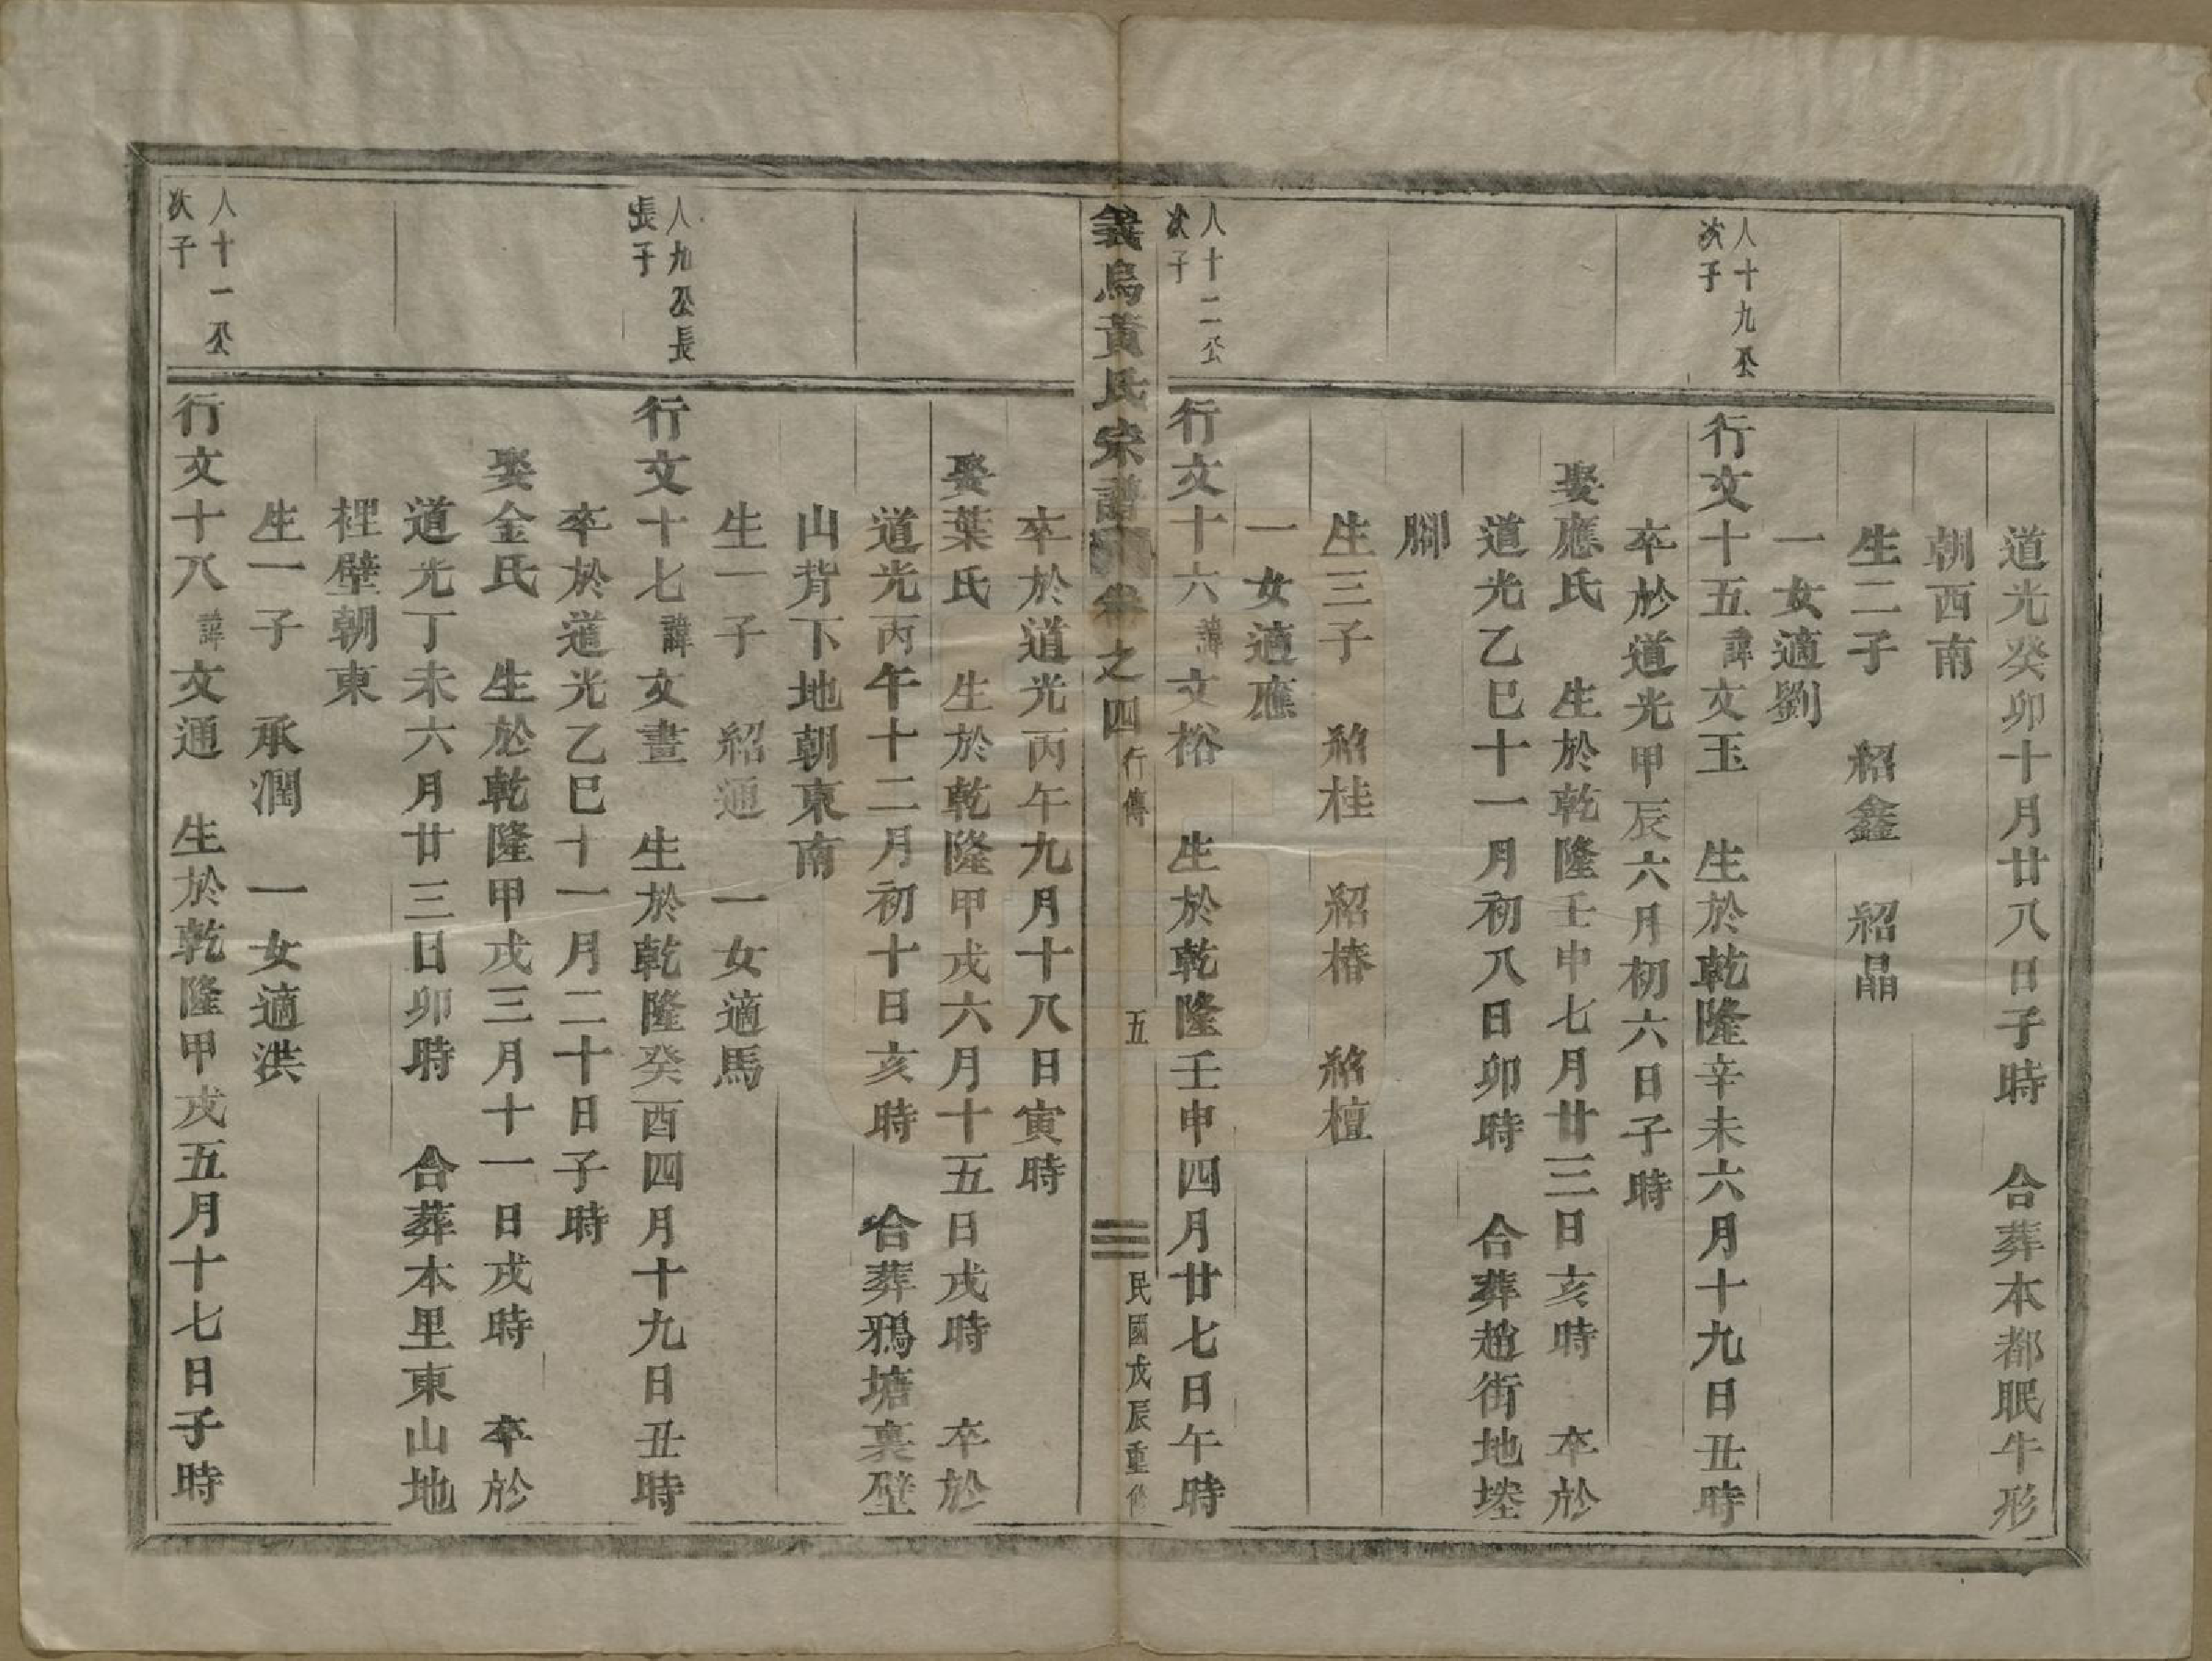 道光癸卯十月廿八日子時　合葬本都眠牛形
朝西南
生二子　紹鑫　紹晶
一女適劉
人十九公
次子
行文十五諱文玉　生於乾隆辛未六月十九日丑時
卒於道光甲辰六月初六日子時
娶應氏　生於乾隆壬申七月廿三日亥時　卒於
道光乙巳十一月初八日卯時　合葬趙街地塝
腳
生三子　紹桂　紹椿　紹檀
一女適應
人十二公
次子
行文十六諱文榕　生於乾隆壬申四月廿七日午時
義烏黃氏宗譜　卷之四　行傳　五　民國戊辰重修
卒於道光丙午九月十八日寅時
娶葉氏　生於乾隆甲戌六月十五日戌時　卒於
道光丙午十二月初十日亥時　合葬鴉塘裏壁
山背下地朝東南
生一子　紹通　一女適馬
人九公長
長子
行文十七諱文畫　生於乾隆癸酉四月十九日丑時
卒於道光乙巳十一月二十日子時
娶金氏　生於乾隆甲戌三月十一日戌時　卒於
道光丁未六月廿三日卯時　合葬本里東山地
裡壁朝東
生一子　承潤　一女適洪
人十一公
次子
行文十八諱文通　生於乾隆甲戌五月十七日子時